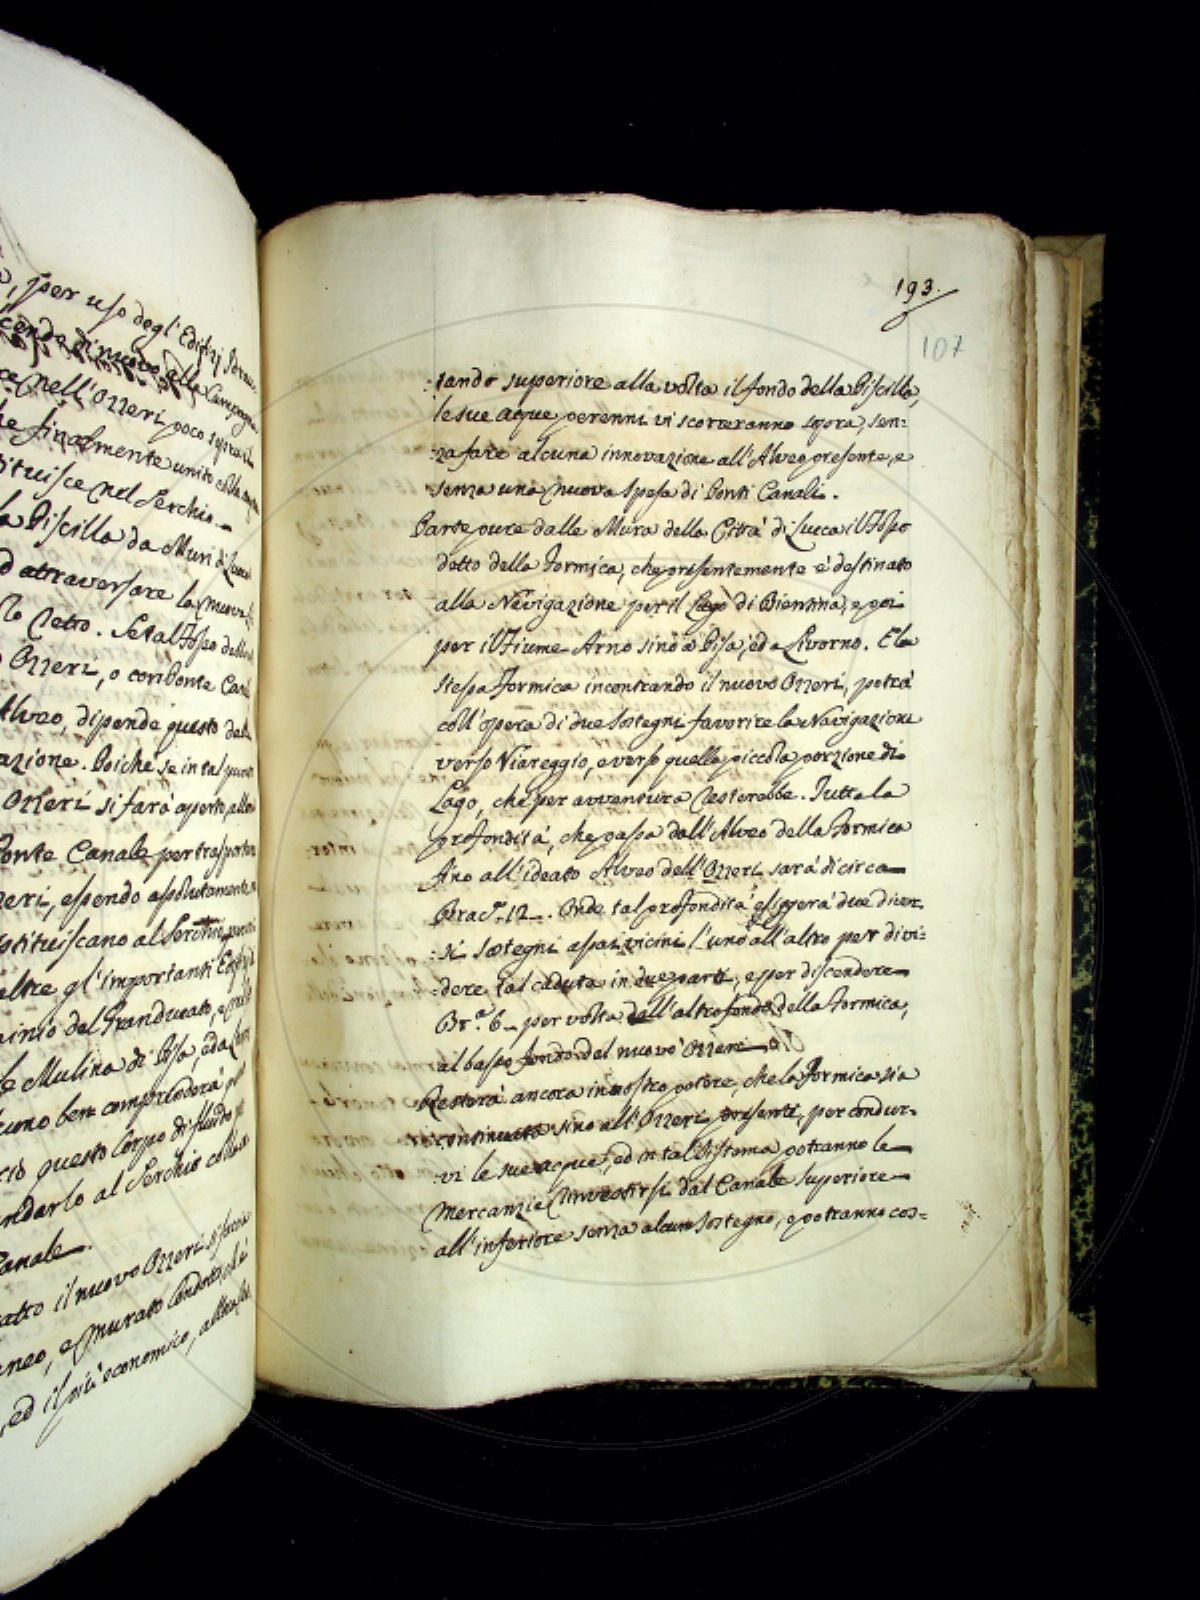 , per uso degl'Edifizj Idrau-
cende di nuovo alla Campagna
ce nell'Ozzeri poco sopra il
he finalmente unito colle acque
tituisce nel Serchio.
la Piscilla da Muri di Lucca
d atraversare la nuova
lo Retto. Se tal Fosso dello
Ozzeri, o con Ponte Canale
Alveo, dipende questo dal
azione. Poiché se in tal punto
Ozzeri si farà aperto, allora
Ponte Canale per trasportare
zeri, essendo assolutamente
stituiscano al Serchio
oltre gl'importanti Edifizj
minio del Granducato, e
le Mulina di Pisa, ed a
cuno ben comprenderà
ciò questo Corpo di fluido
ndarlo al Serchio colla
Canale.
tratto il nuovo Ozzeri si faccia
aneo, e murato Condotto, ch'è
, ed il più economico, allora
193.
107
:tando superiore alla volta il fondo della Piscilla,
le sue Acque perenni vi scorreranno sopra, sen-
:za fare alcuna innovazione all'Alveo presente, e
senza una nuova spesa di Ponti Canali.
Parte pure dalle Mura della Città di Lucca il Fosso
detto della Formica, che presentemente è destinato
alla Nevigazione per il Lago di Bientina, e poi
per il Fiume Arno sino a Pisa, ed a Livorno. E la
stessa Formica incontrando il nuovo Ozzeri, potrà
coll'opera di due Sostegni favorire la Navigazione
verso Viareggio, e verso quella piccola porzione di
Lago, che per avventura resterebbe. Tutta la
profondità, che passa dall'Alveo della Formica
fino all'ideato Alveo dell'Ozzeri sarà di circa
Bracc.ª 12. Onde tal profondità esiggerà due diver-
:si Sostegni assai vicini l'uno all'altro per divi-
:dere tal caduta in due parti, e per discendere
Br.ª 6 per volta dall'alto fondo della Formica,
al basso fondo del nuovo Ozzeri.
Resterà ancora in nostro potere, che la Formica sia
continuata sino all'Ozzeri presente, per condur-
:vi le sue acque, ed in tal Sistema potranno le
Mercanzie rinvestirsi dal Canale superiore
all'inferiore senza alcun Sostegno, e potranno cos=